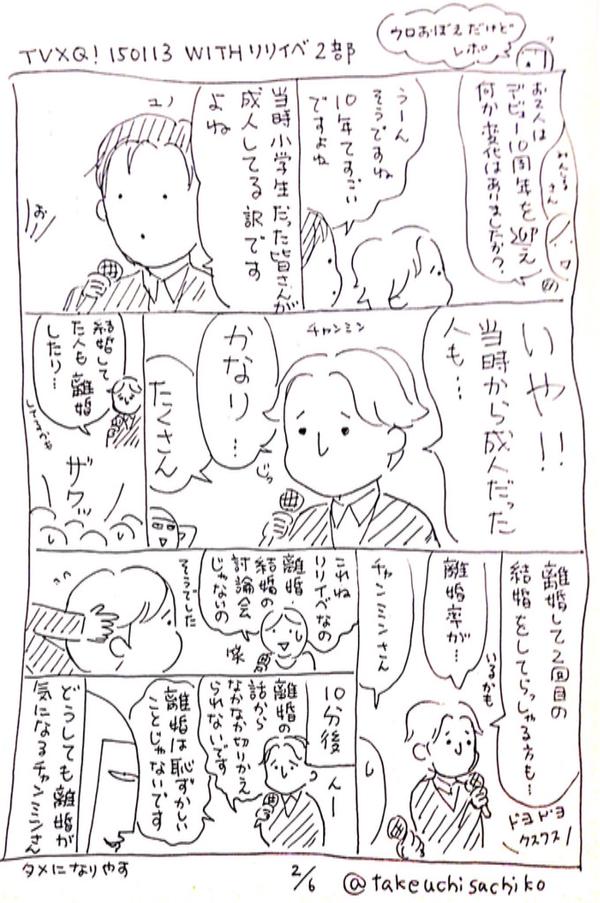 TVXQ! 150113 WITHリリイベ2部
ウロおぼえだけど
レポ
お2人は
デビュー10周年を迎え
何か変化はありましたか?
みんしる
さん
うーん
そうですね
10年てすごい
ですよね
当時小学生だった皆さんが
成人してる訳です
よね
ユノ
おぉ
いや!!
当時から成人だった
人も…
チャンミン
かなり…
たくさん
じっ
結婚して
た人も離婚
したり…
ザクッ
離婚して2回目の
結婚をしてらっしゃる方も…
いるかも
離婚率が…
チャンミンさん
ドヨドヨ
クスクス
これね
リリイベなの
離婚
結婚の
討論会
じゃないの
笑
そうでした
10分後
んー
離婚の
話から
なかなか切りかえ
られないです
離婚は恥ずかしい
ことじゃないです
どうしても離婚が
気になるチャンミンさん
タメになりやす
2/6
@takeuchisachiko